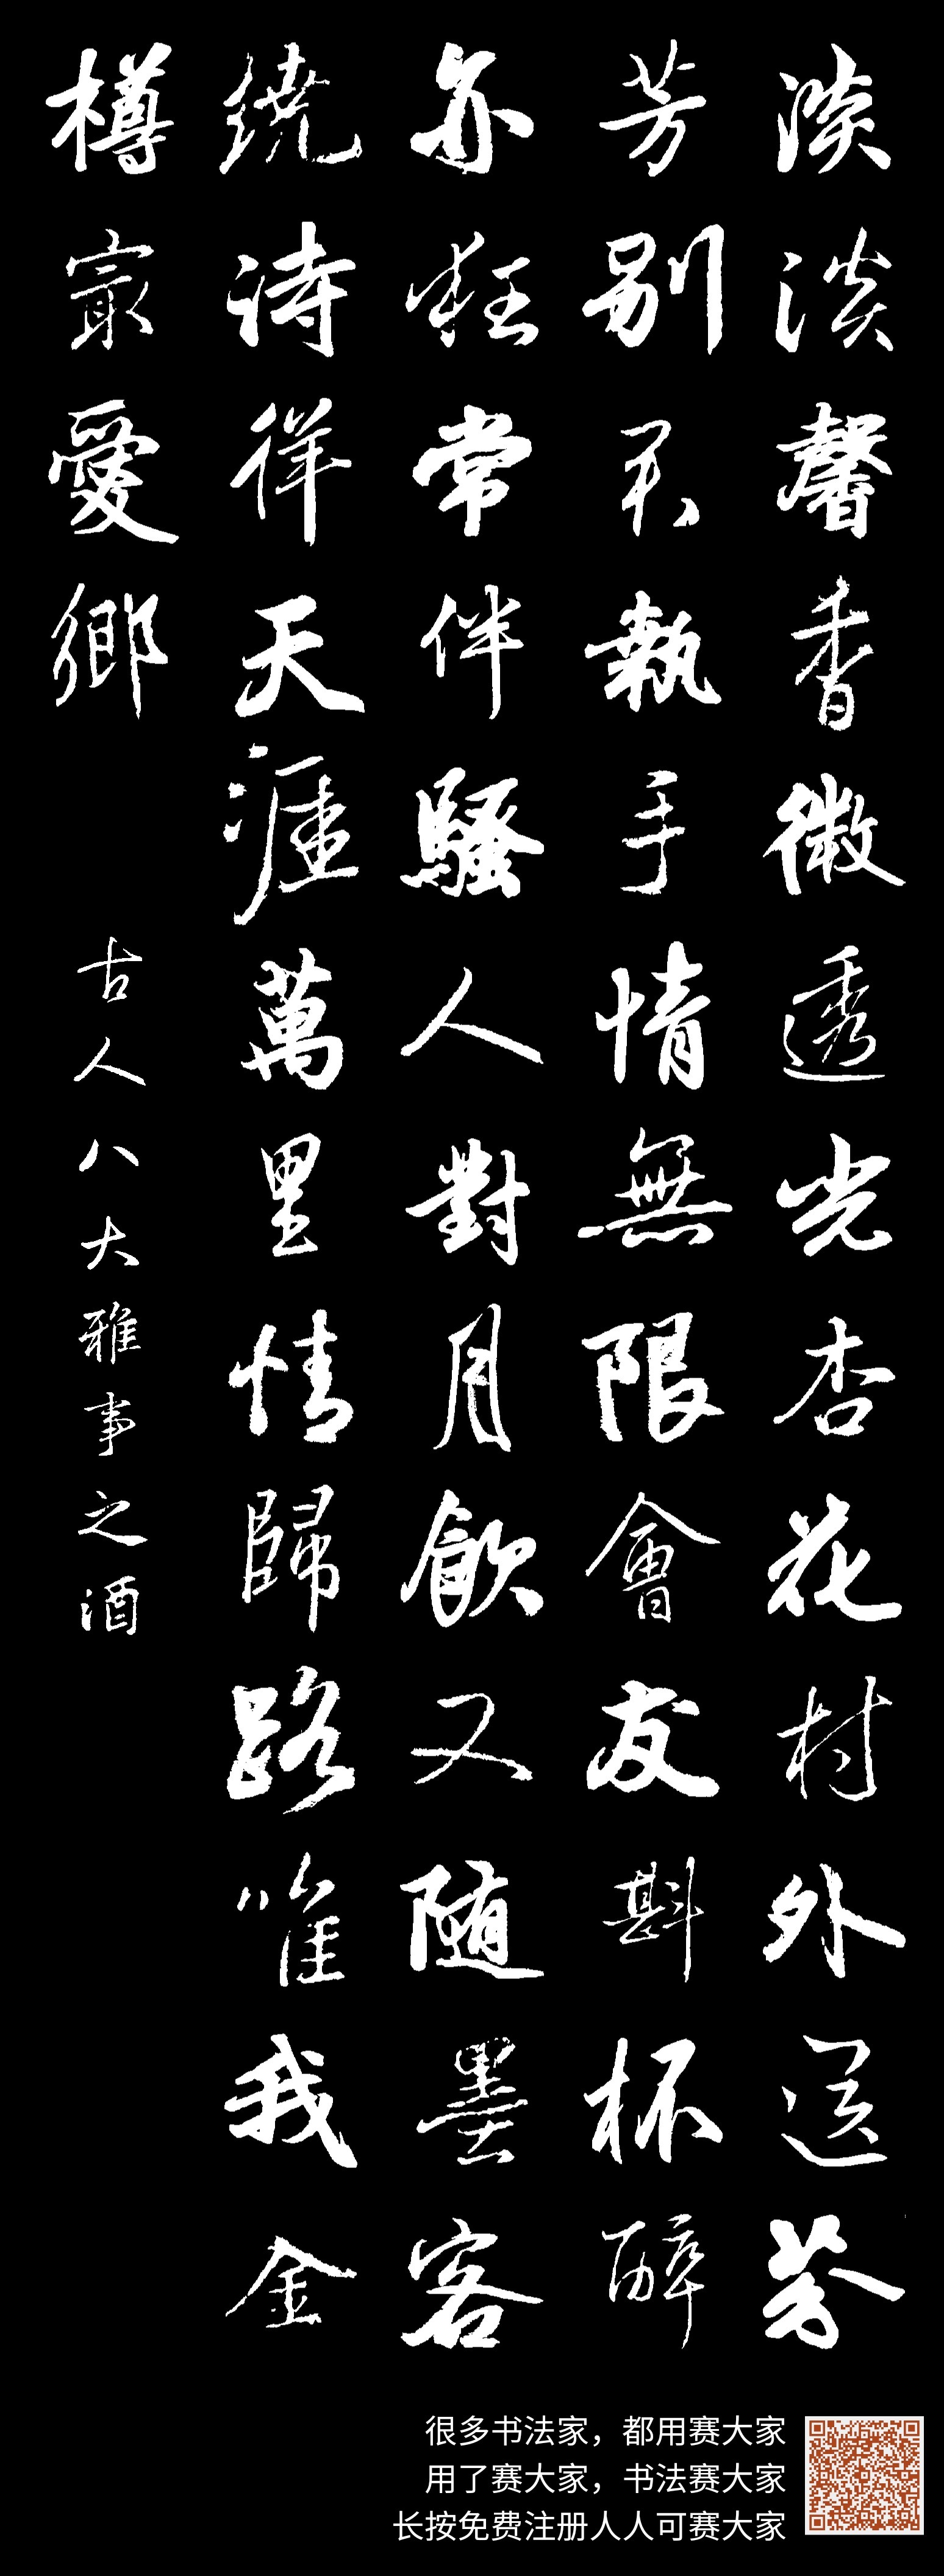 淡淡馨香微透光杏花村外送芬
芳别不執手情無限會友斟杯醉
亦狂常伴騷人對月飲又随墨客
繞诗徉天涯萬里情歸路唯我金
樽最愛鄉
古人八大雅事之酒
很多书法家，都用赛大家
用了赛大家，书法赛大家
长按免费注册人人可赛大家